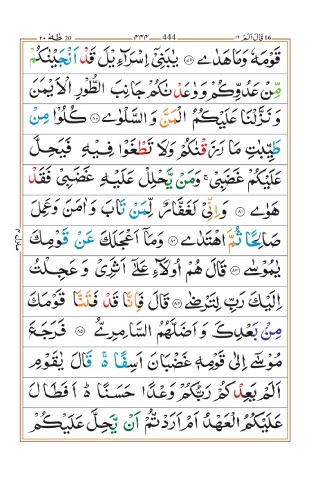 ٢٠ طٰهٰ 20 ٤٤٤ 444 قَالَ اَلَمْ ١٦ 16
قَوْمَهٗ وَمَا هَدٰى ﴿٧٩﴾ يٰبَنِىْۤ اِسْرَآءِيْلَ قَدْ اَنْجَيْنٰكُمْ
مِّنْ عَدُوِّكُمْ وَوٰعَدْنٰكُمْ جَانِبَ الطُّوْرِ الْاَيْمَنَ
وَنَزَّلْنَا عَلَيْكُمُ الْمَنَّ وَالسَّلْوٰى ﴿٨٠﴾ كُلُوْا مِنْ
طَيِّبٰتِ مَا رَزَقْنٰكُمْ وَلَا تَطْغَوْا فِيْهِ فَيَحِلَّ
عَلَيْكُمْ غَضَبِىْ ۚ وَمَنْ يَّحْلِلْ عَلَيْهِ غَضَبِىْ فَقَدْ
هَوٰى ﴿٨١﴾ وَاِنِّىْ لَغَفَّارٌ لِّمَنْ تَابَ وَاٰمَنَ وَعَمِلَ
صَالِحًا ثُمَّ اهْتَدٰى ﴿٨٢﴾ وَمَاۤ اَعْجَلَكَ عَنْ قَوْمِكَ
يٰمُوْسٰى ﴿٨٣﴾ قَالَ هُمْ اُولَآءِ عَلٰٓى اَثَرِىْ وَعَجِلْتُ
اِلَيْكَ رَبِّ لِتَرْضٰى ﴿٨٤﴾ قَالَ فَاِنَّا قَدْ فَتَنَّا قَوْمَكَ
مِنْۢ بَعْدِكَ وَاَضَلَّهُمُ السَّامِرِىُّ ﴿٨٥﴾ فَرَجَعَ
مُوْسٰۤى اِلٰى قَوْمِهٖ غَضْبَانَ اَسِفًا ۚ قَالَ يٰقَوْمِ
اَلَمْ يَعِدْكُمْ رَبُّكُمْ وَعْدًا حَسَنًا ؕ اَفَطَالَ
عَلَيْكُمُ الْعَهْدُ اَمْ اَرَدْتُّمْ اَنْ يَّحِلَّ عَلَيْكُمْ